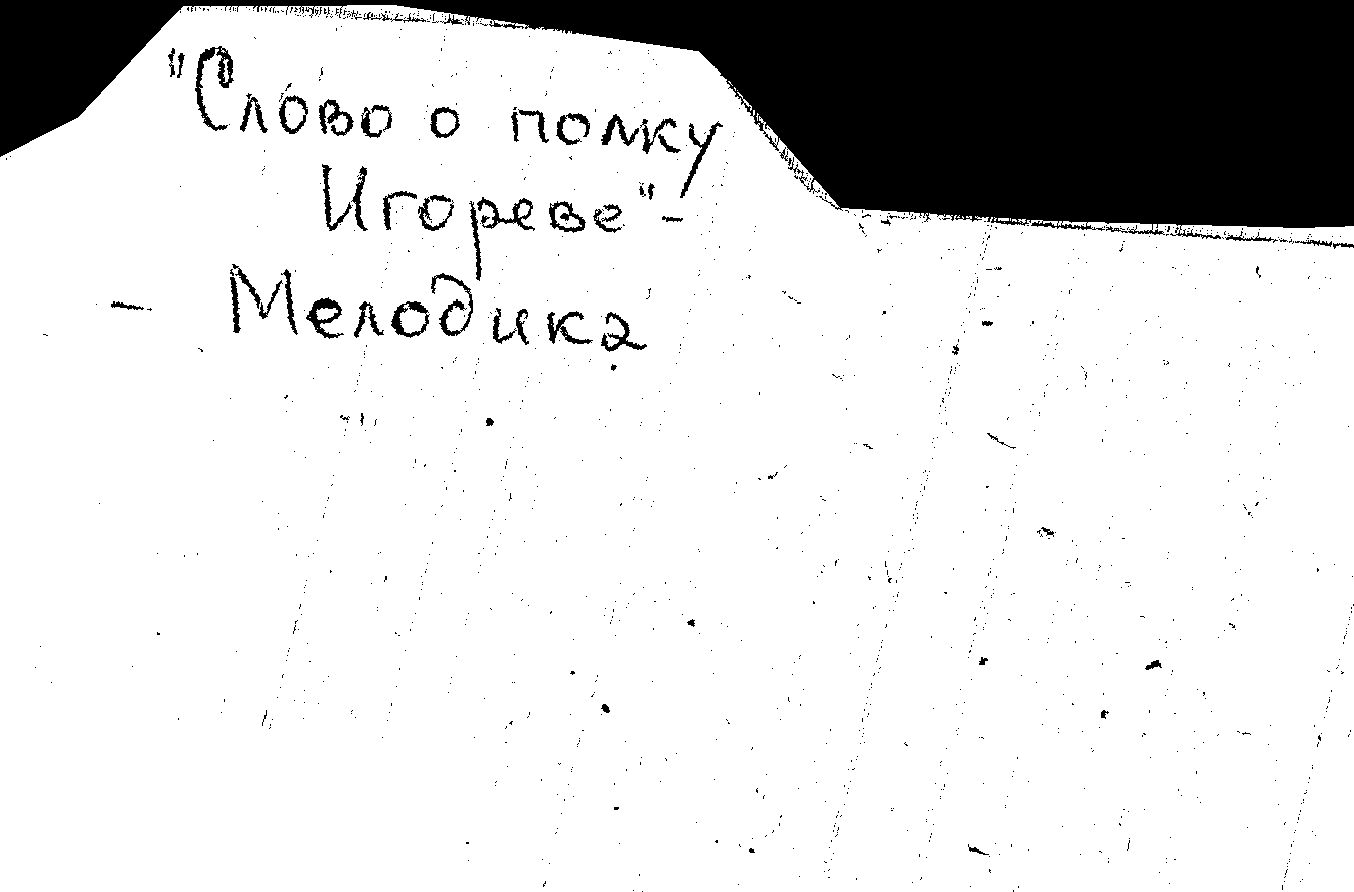 "Слово о полку
Игореве"-
- Мелодика